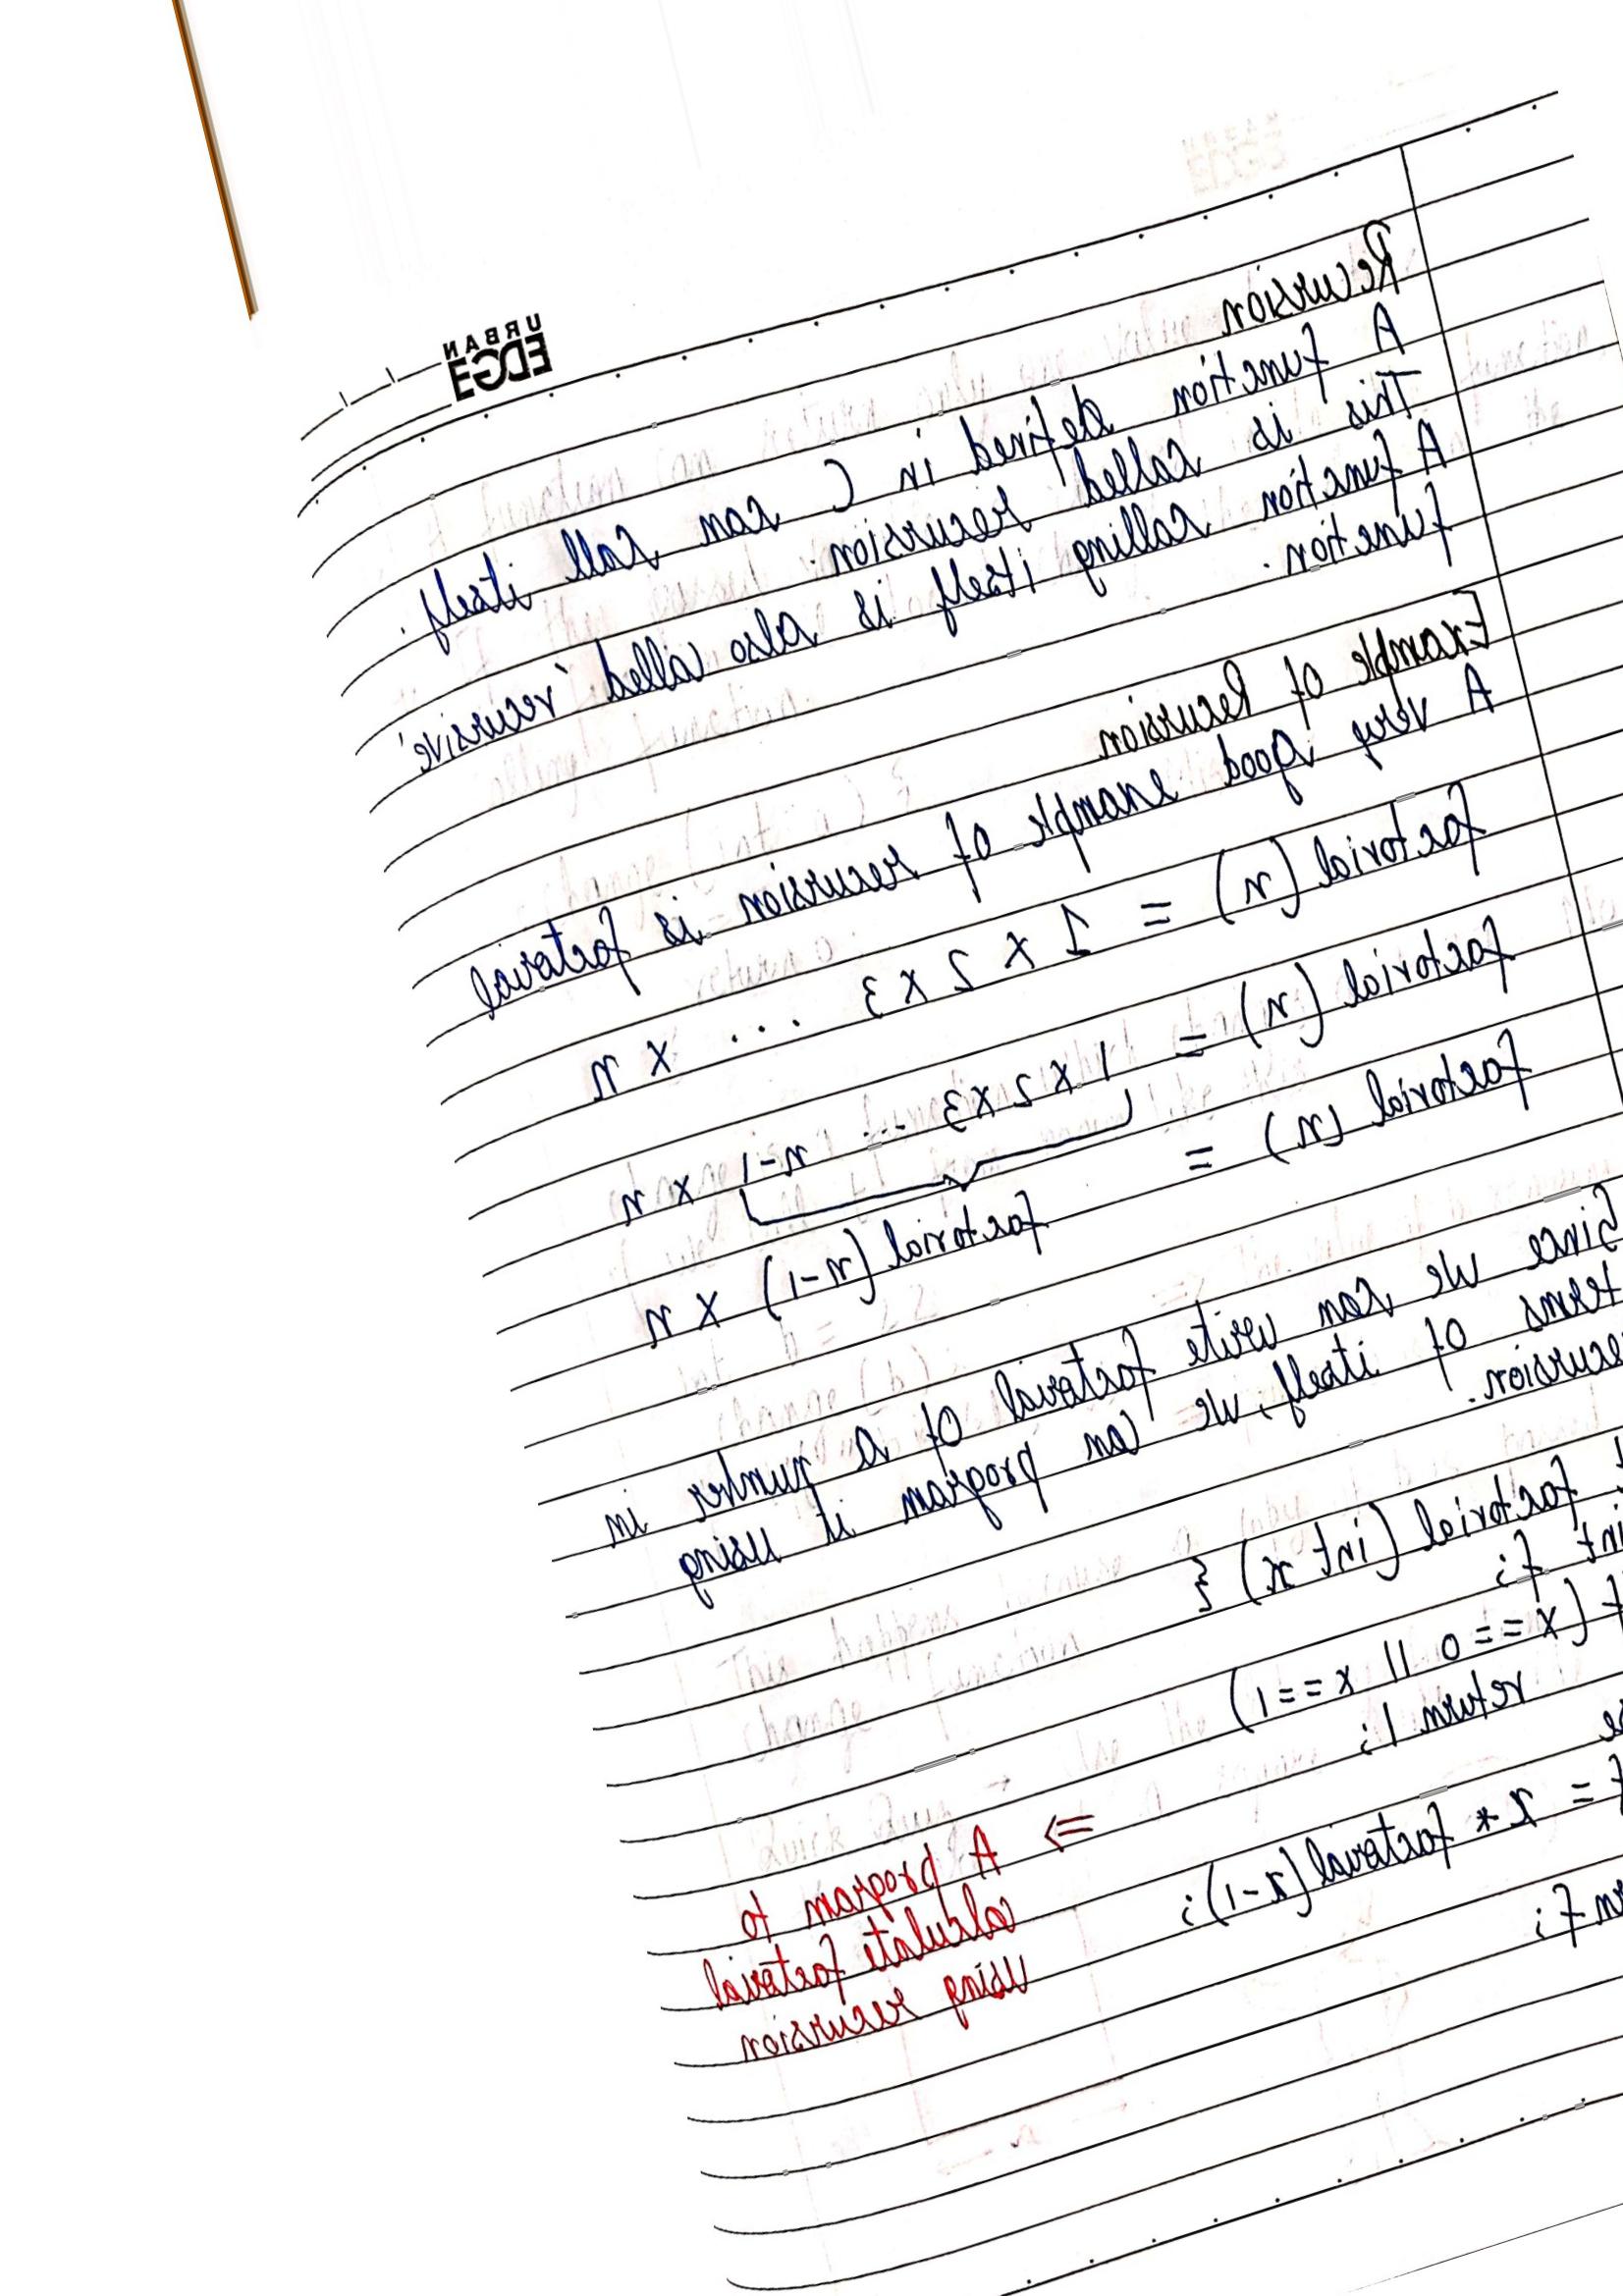 URBAN
EDGE
Recursion
A function defined in C can call itself.
This is called recursion.
A function calling itself is also called 'recursive'
function.
Example of Recursion
A very good example of recursion is factorial
factorial (n) = 1 x 2 x 3 ... x n
factorial (n) = 1 x 2 x 3 ... n-1 x n
factorial (n) = factorial (n-1) x n
Since we can write factorial of a number in
terms of itself, we can program it using
recursion.
factorial (int x) {
int f;
(x == 0 || x == 1)
return 1;
f = x * factorial (x-1);
f;
=> A program to
calculate factorial
using recursion